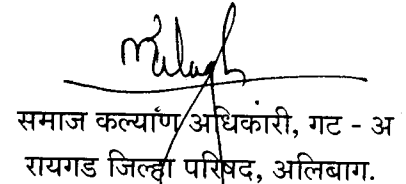 समाज कल्याण अधिकारी, गट - अ
रायगड जिल्हा परिषद, अलिबाग.